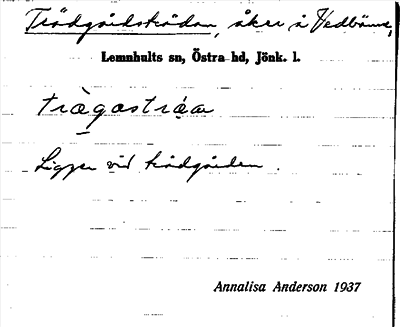 Trädgårdsträdan, åker å Vedbäns,
Lemnhults sn, Östra hd, Jönk. l.
trægastráa
Ligger vid trädgården.
Annalisa Anderson 1937